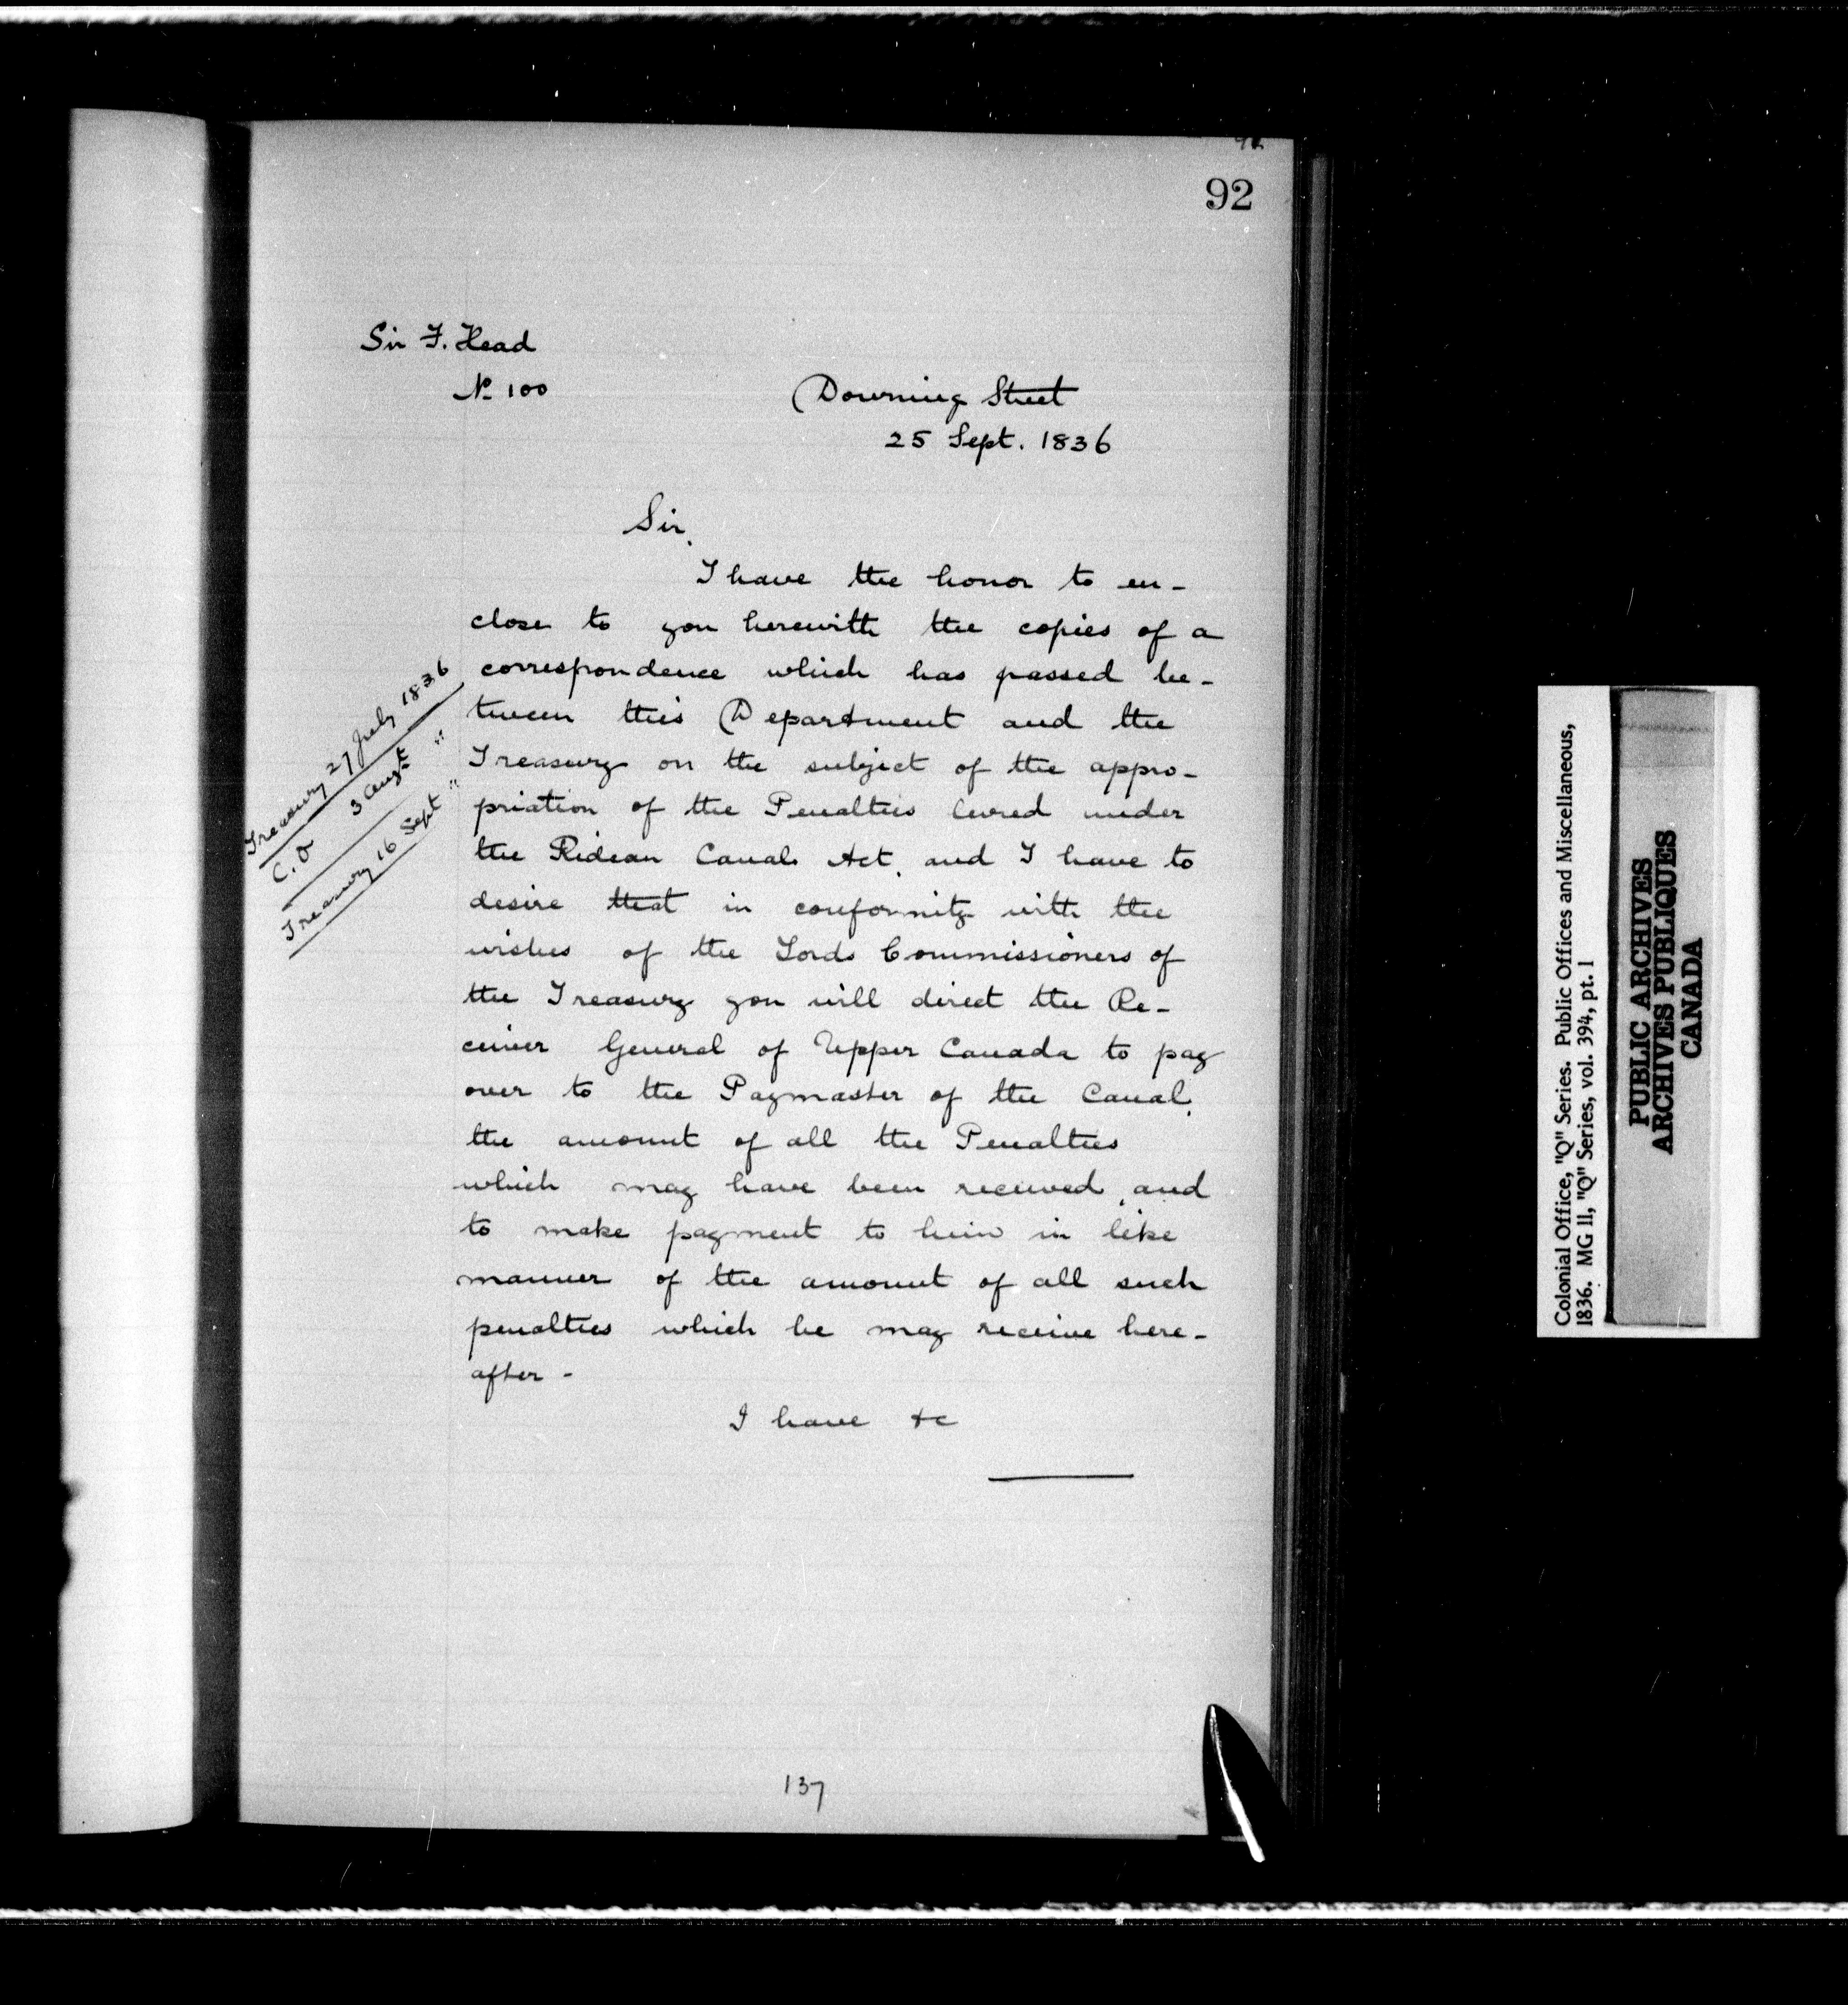 92
Sir F. Head
No 100
Downing Street
25 Sept. 1836
Sir,
I have the honor to en-
close to you herewith the copies of a
correspondence which has passed be-
tween this Department and the
Treasury on the subject of the appro-
priation of the Penalties levied under
the Rideau Canal Act, and I have to
desire that in conformity with the
wishes of the Lords Commissioners of
the Treasury you will direct the Re-
ceiver General of Upper Canada to pay
over to the Paymaster of the Canal,
the amount of all the Penalties
which may have been received, and
to make payment to him in like
manner of the amount of all such
penalties which he may receive here-
after -
I have &c
Treasury 27 July 1836
C. O 3 Augt "
Treasury 16 Sept "
137
Colonial Office, "Q" Series. Public Offices and Miscellaneous,
1836. MG 11, "Q" Series, vol. 394, pt. 1
PUBLIC ARCHIVES
ARCHIVES PUBLIQUES
CANADA